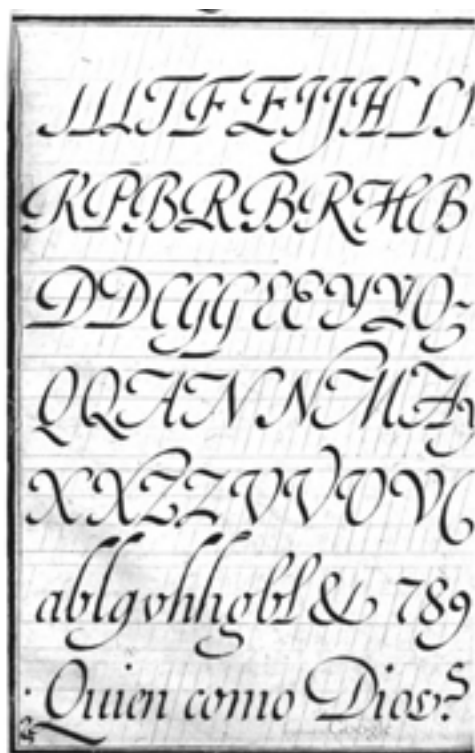 JLLTFEIJHLI
KPBRBRHB
DDCGGEEYYO
QQANNMA
XXZZVVVV
ablgvhhgbl & 789
Quien como Dios?